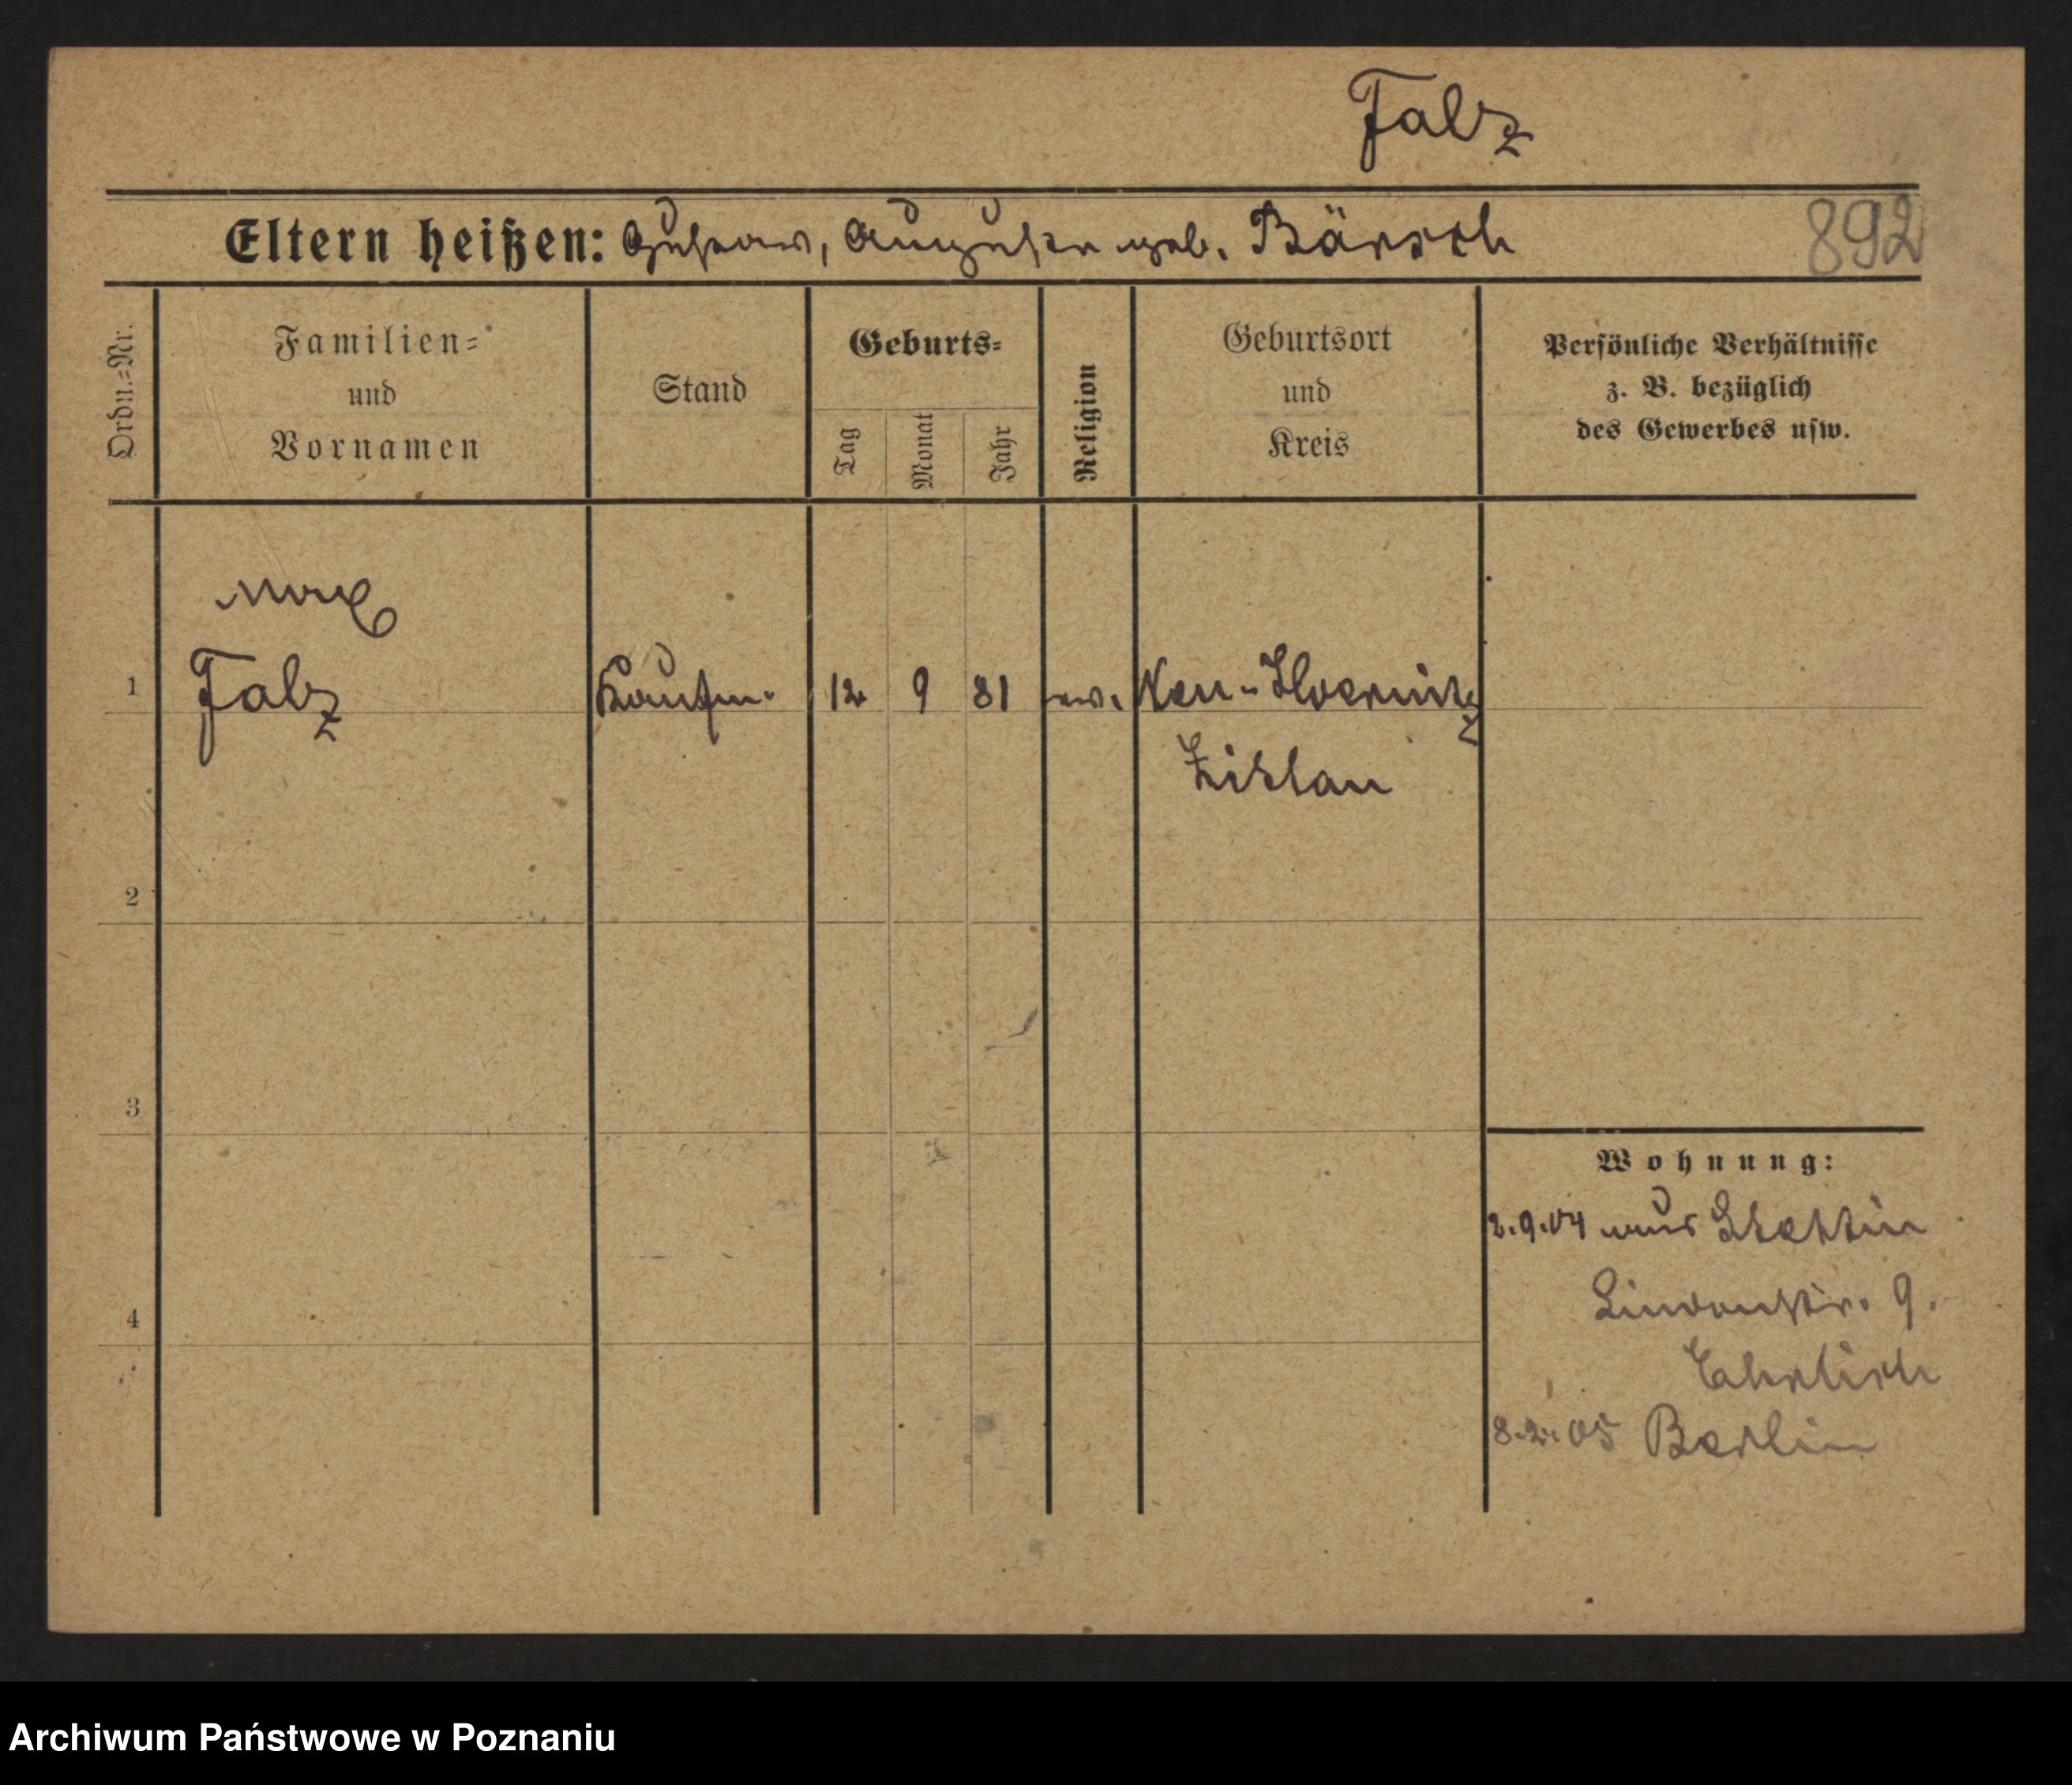 Falz
Eltern heißen: Gustav, Auguste geb. Bärsch
892
Ordn.=Nr.
Familien=
und
Vornamen
Stand
Geburts=
Tag
Monat
Jahr
Religion
Geburtsort
und
Kreis
Persönliche Verhältnisse
z. B. bezüglich
des Gewerbes usw.
Max
1 Falz Kaufm. 12 9 81 ev. Neu-
2
3
4
Wohnung:
2.9.04 aus Stettin
Lindenstr. 9.
Ehrlich
8.2.05 Berlin
Archiwum Państwowe w Poznaniu